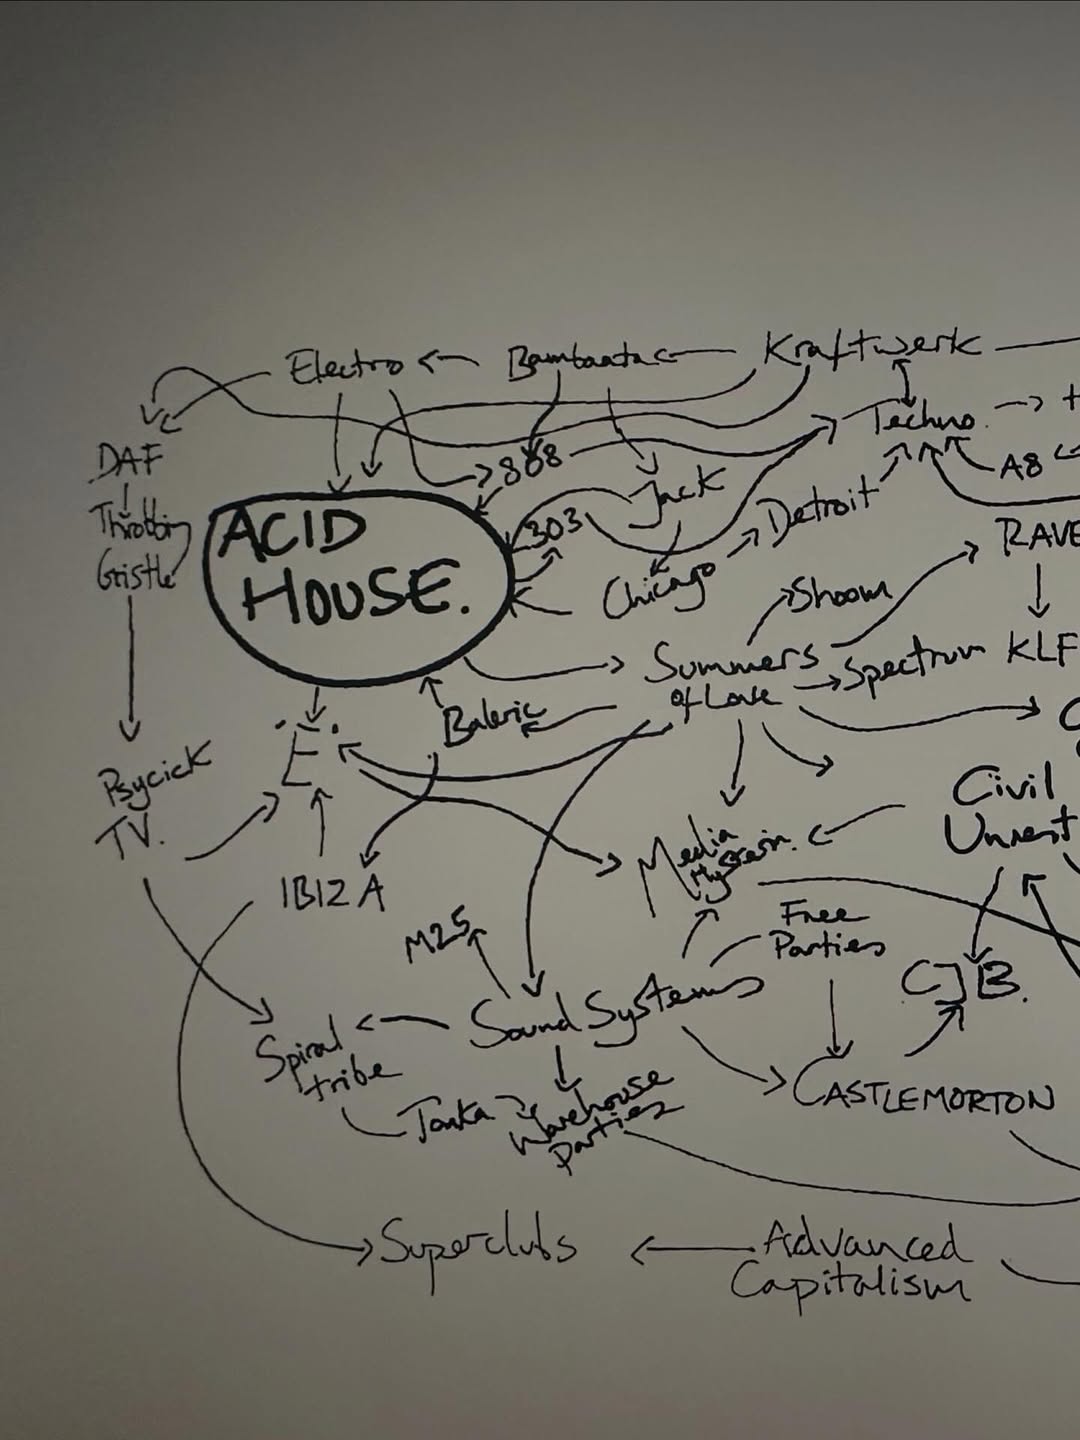 Electro
Bambaata
Kraftwerk
Techno.
DAF
808
A8
Throbbing
Gristle
ACID
HOUSE.
303
Jack
Detroit
RAVE
Chicago
Shoom
Summers
of Love
Spectrum
KLF
Baleric
'E'.
Psycick
TV.
Civil
Unrest
Media
IBIZA
M25
Free
Parties
CJB.
Sound Systems
Spiral
tribe
CASTLEMORTON
Tonka
Warehouse
Parties
Superclubs
Advanced
Capitalism